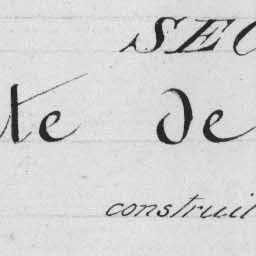 SEC
te de
construit